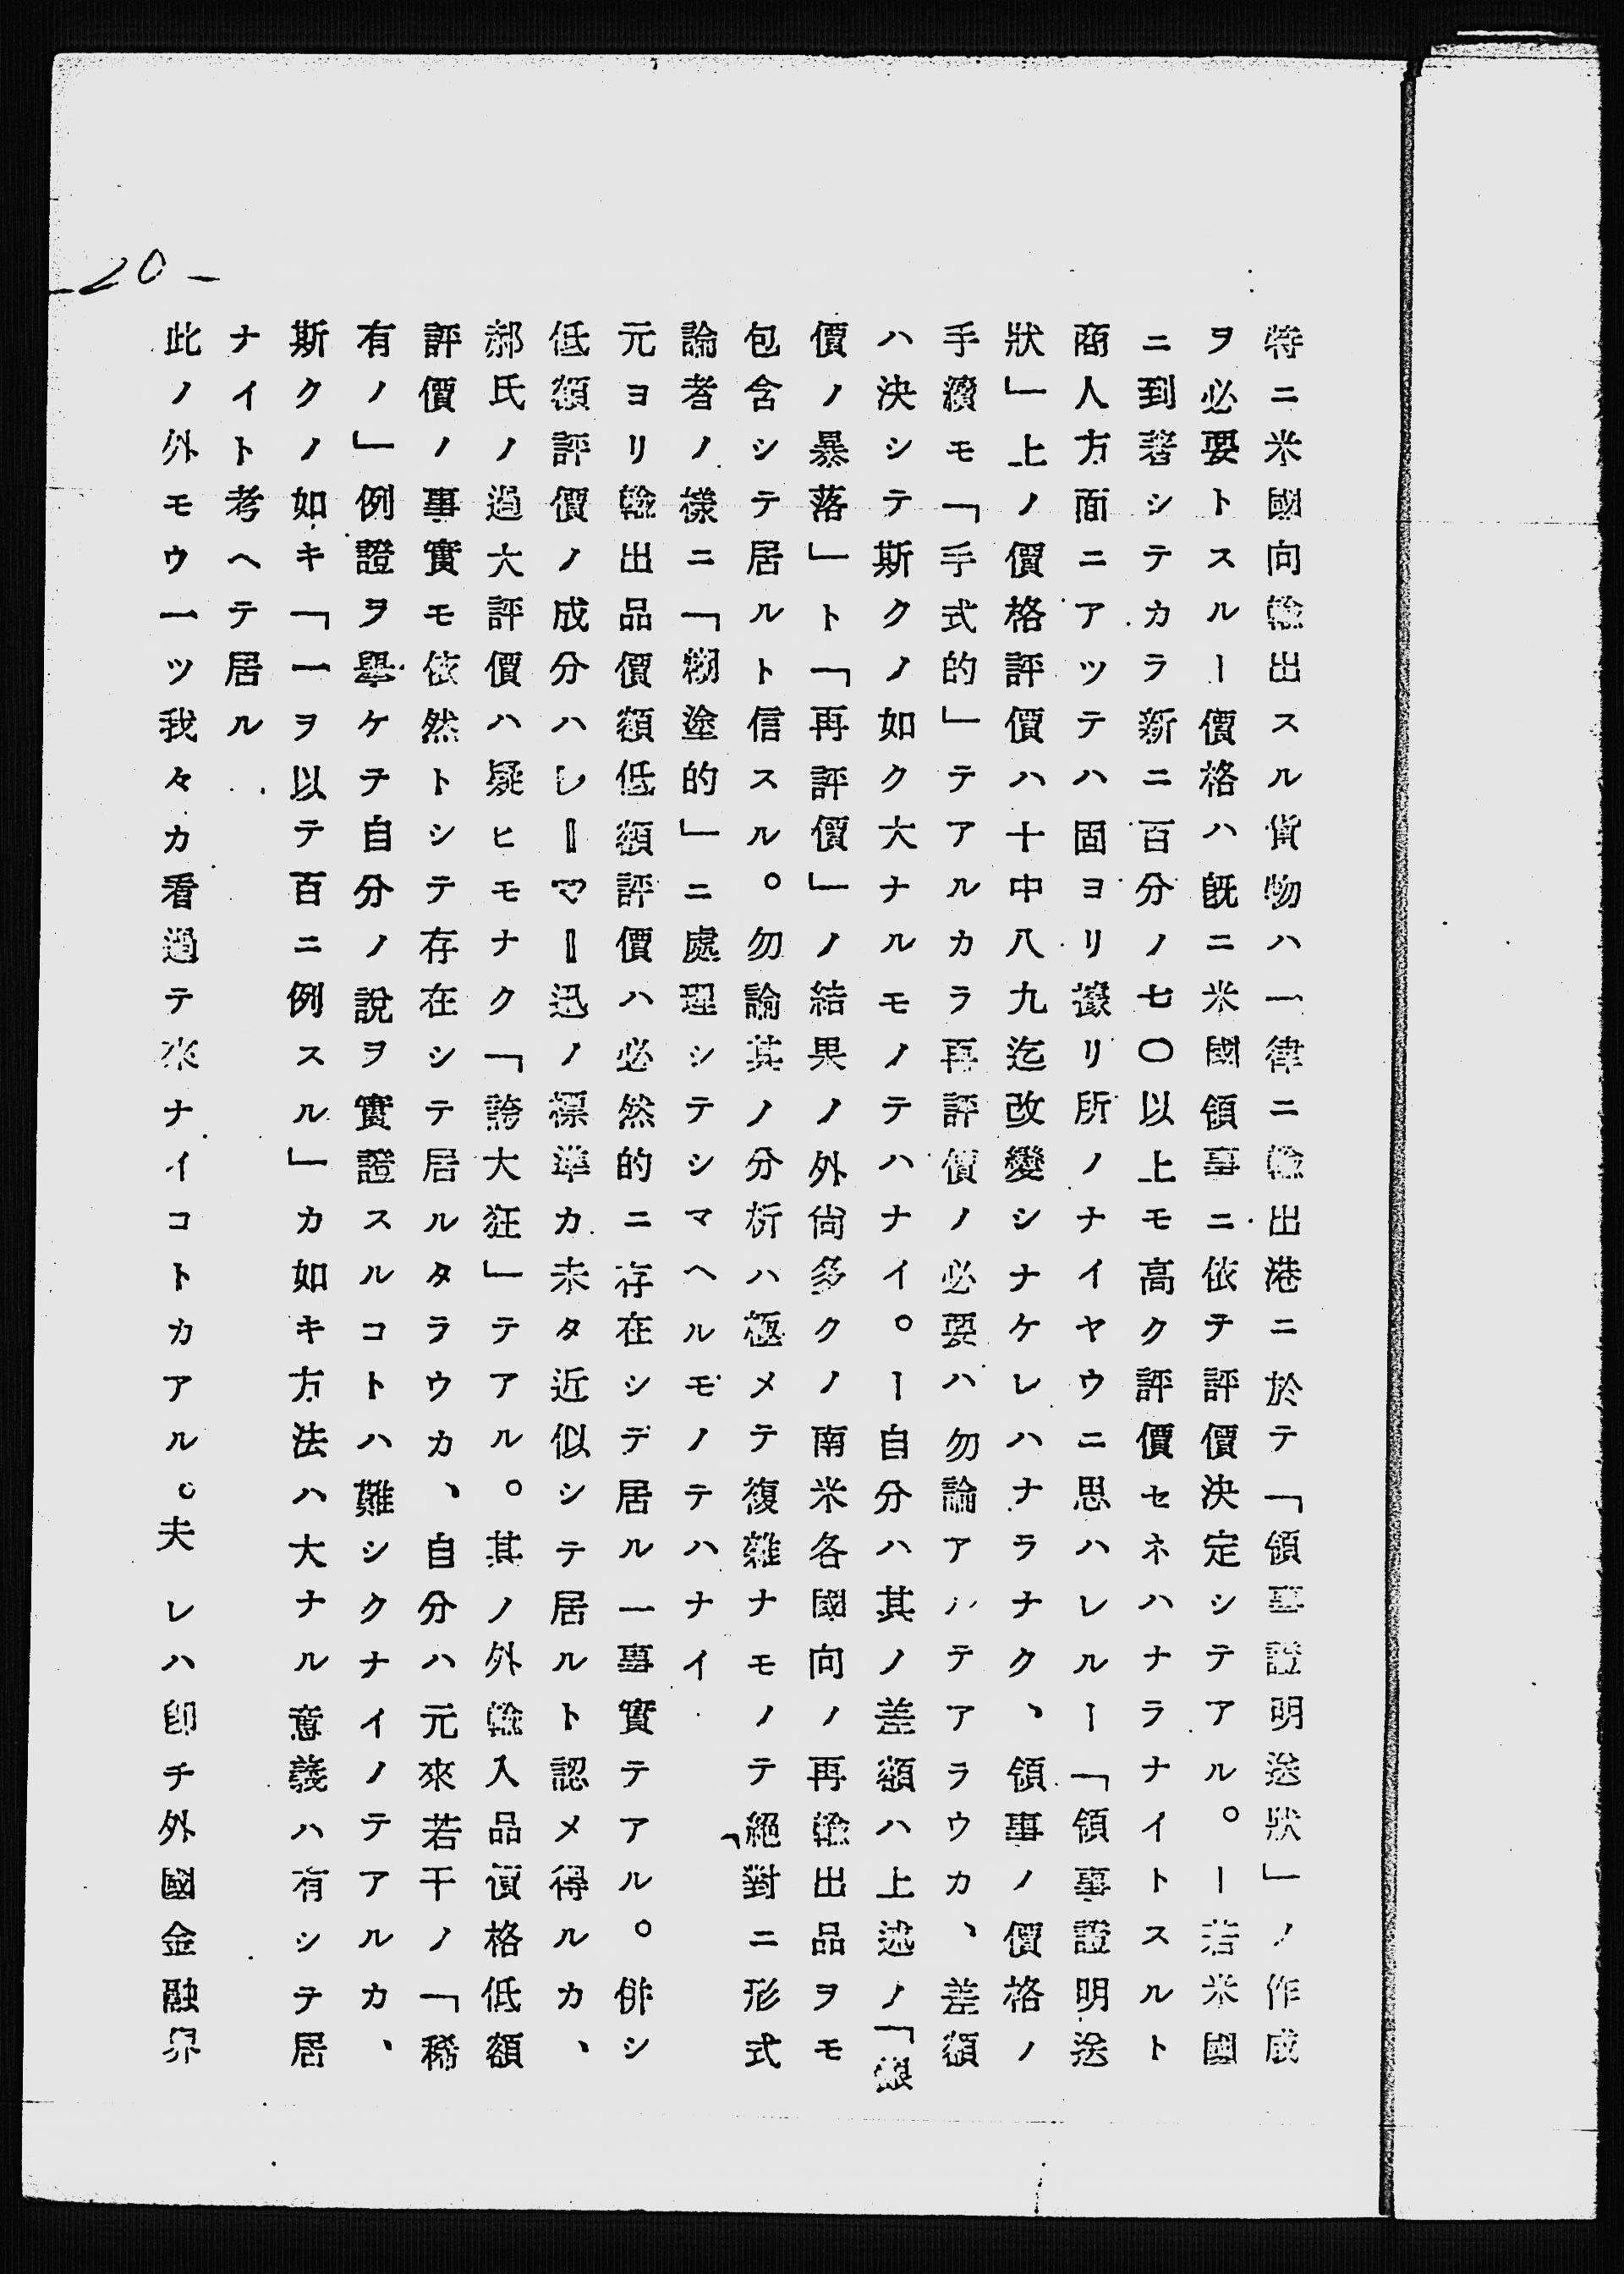 特ニ米國向輸出スル貨物ハ一律ニ輸出港ニ於テ「領事證明送狀」ノ作成
ヲ必要トスルー價格ハ既ニ米國領事ニ依テ評價決定シテアル。ー若米國
ニ到著シテカラ新ニ百分ノ七〇以上モ高ク評價セネハナラナイトスルト
商人方面ニアツテハ固ヨリ據リ所ノナイヤウニ思ハレルー「領事證明送
狀」上ノ價格評價ハ十中八九迄改變シナケレハナラナク、領事ノ價格ノ
手續モ「手式的」テアルカラ再評價ノ必要ハ勿論アルテアラウカ、差額
ハ決シテ斯クノ如ク大ナルモノテハナイ。ー自分ハ其ノ差額ハ上述ノ「銀
價ノ暴落」ト「再評價」ノ結果ノ外尙多クノ南米各國向ノ再輸出品ヲモ
包含シテ居ルト信スル。勿論其ノ分析ハ極メテ復雜ナモノテ「絕對ニ形式
論者ノ樣ニ「糊塗的」ニ處理シテシマヘルモノテハナイ
元ヨリ輸出品價額低額評價ハ必然的ニ存在シデ居ル一事實テアル。併シ
低額評價ノ成分ハレーマー迅ノ標準カ未タ近似シテ居ルト認メ得ルカ、
郝氏ノ過大評價ハ疑ヒモナク「誇大狂」テアル。其ノ外輸入品價格低額
評價ノ事實モ依然トシテ存在シテ居ルタラウカ、自分ハ元來若干ノ「稀
有ノ」例證ヲ擧ケテ自分ノ說ヲ實證スルコトハ難シクナイノテアルカ、
斯クノ如キ「一ヲ以テ百ニ例スル」カ如キ方法ハ大ナル意義ハ有シテ居
ナイト考ヘテ居ル
此ノ外モウ一ツ我々カ看過テ來ナイコトカアル。夫レハ卽チ外國金融界
-20-